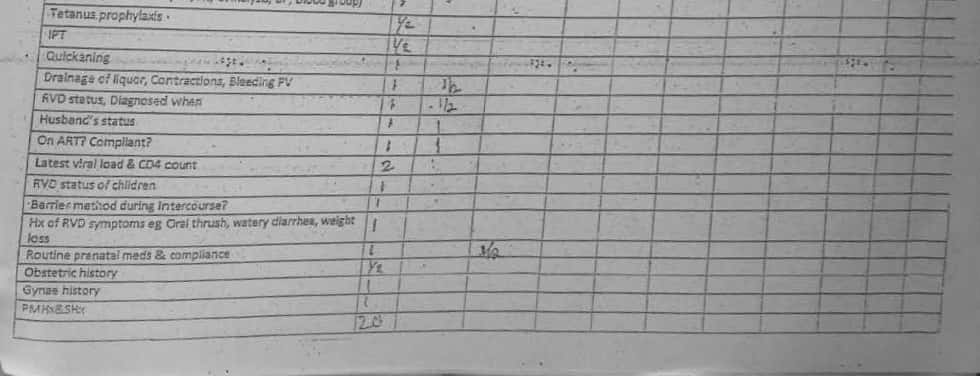 Tetanus prophylaxis 1/2
IPT 1/2
Quickening 1
Drainage of liquor, Contractions, Bleeding PV 1 1/2
RVD status, Diagnosed when 1 1/2
Husband's status 1 1
On ART? Compliant? 1 1
Latest viral load & CD4 count 2
RVD status of children 1
Barrier method during intercourse? 1
Hx of RVD symptoms eg Oral thrush, watery diarrhea, weight 1
loss
Routine prenatal meds & compliance 1
Obstetric history 1/2
Gynae history 1
PMHx&SHx 1
20